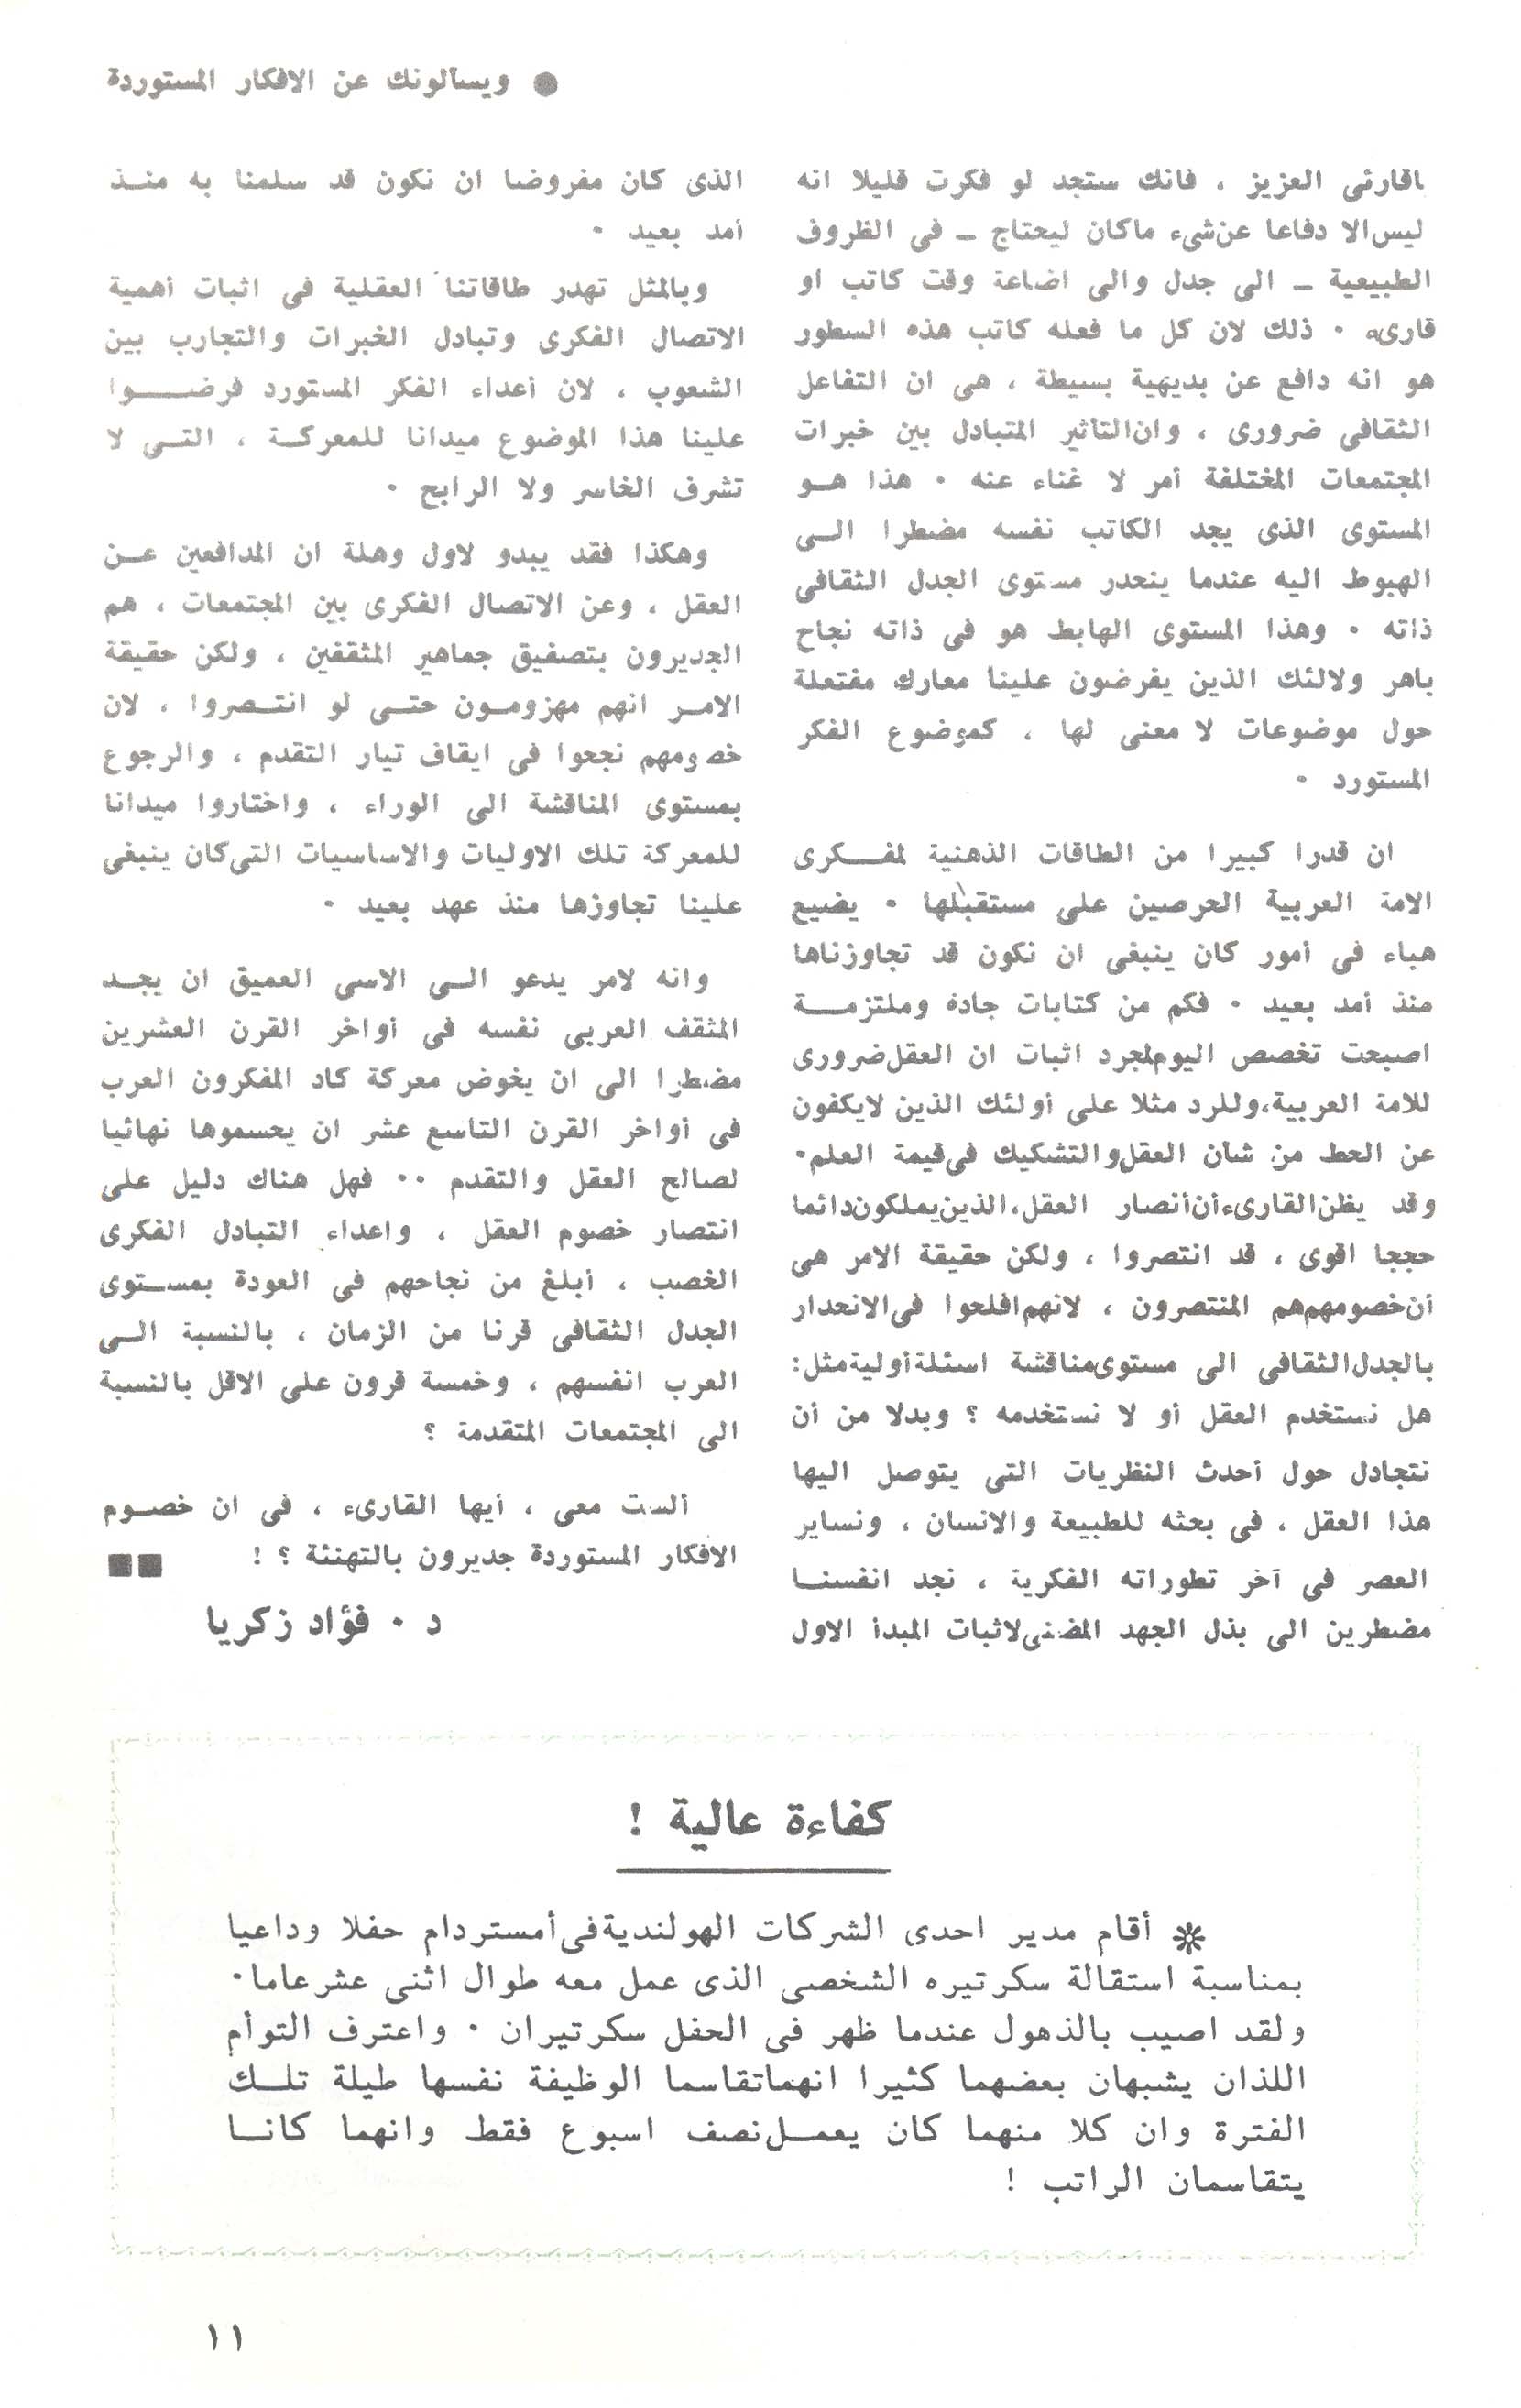 ● ويسألونك عن الافكار المستوردة
ياقارئى العزيز ، فانك ستجد لو فكرت قليلا انه
ليس الا دفاعا عن شىء ماكان ليحتاج ــ فى الظروف
الطبيعية ــ الى جدل والى اضاعة وقت كاتب او
قارىء ٠ ذلك لان كل ما فعله كاتب هذه السطور
هو انه دافع عن بديهية بسيطة ، هى ان التفاعل
الثقافى ضرورى ، وان التأثير المتبادل بين خبرات
المجتمعات المختلفة أمر لا غناء عنه ٠ هذا هو
المستوى الذى يجد الكاتب نفسه مضطرا الى
الهبوط اليه عندما ينحدر مستوى الجدل الثقافى
ذاته ٠ وهذا المستوى الهابط هو فى ذاته نجاح
باهر ولالئك الذين يفرضون علينا معارك مفتعلة
حول موضوعات لا معنى لها ، كموضوع الفكر
المستورد ٠
ان قدرا كبيرا من الطاقات الذهنية لمفكرى
الامة العربية الحرصين على مستقبلها ٠ يضيع
هباء فى أمور كان ينبغى ان نكون قد تجاوزناها
منذ أمد بعيد ٠ فكم من كتابات جادة وملتزمة
اصبحت تخصص اليوم لمجرد اثبات ان العقل ضرورى
للامة العربية، وللرد مثلا على أولئك الذين لايكفون
عن الحط من شأن العقل والتشكيك فى قيمة العلم٠
وقد يظن القارىء أن أنصار العقل، الذين يملكون دائما
حججا اقوى ، قد انتصروا ، ولكن حقيقة الامر هى
أن خصومهم هم المنتصرون ، لانهم افلحوا فى الانحدار
بالجدل الثقافى الى مستوى مناقشة اسئلة أولية مثل :
هل نستخدم العقل أو لا نستخدمه ؟ وبدلا من أن
نتجادل حول أحدث النظريات التى يتوصل اليها
هذا العقل ، فى بحثه للطبيعة والانسان ، ونساير
العصر فى آخر تطوراته الفكرية ، نجد انفسنا
مضطرين الى بذل الجهد المضنى لاثبات المبدأ الاول
الذى كان مفروضا ان نكون قد سلمنا به منذ
أمد بعيد ٠
وبالمثل تهدر طاقاتنا العقلية فى اثبات أهمية
الاتصال الفكرى وتبادل الخبرات والتجارب بين
الشعوب ، لان أعداء الفكر المستورد فرضوا
علينا هذا الموضوع ميدانا للمعركة ، التى لا
تشرف الخاسر ولا الرابح ٠
وهكذا فقد يبدو لاول وهلة ان المدافعين عن
العقل ، وعن الاتصال الفكرى بين المجتمعات ، هم
الجديرون بتصفيق جماهير المثقفين ، ولكن حقيقة
الامر انهم مهزومون حتى لو انتصروا ، لان
خصومهم نجحوا فى ايقاف تيار التقدم ، والرجوع
بمستوى المناقشة الى الوراء ، واختاروا ميدانا
للمعركة تلك الاوليات والاساسيات التى كان ينبغى
علينا تجاوزها منذ عهد بعيد ٠
وانه لامر يدعو الى الاسى العميق ان يجد
المثقف العربى نفسه فى أواخر القرن العشرين
مضطرا الى ان يخوض معركة كاد المفكرون العرب
فى أواخر القرن التاسع عشر ان يحسموها نهائيا
لصالح العقل والتقدم ٠٠ فهل هناك دليل على
انتصار خصوم العقل ، واعداء التبادل الفكرى
الخصب ، أبلغ من نجاحهم فى العودة بمستوى
الجدل الثقافى قرنا من الزمان ، بالنسبة الى
العرب انفسهم ، وخمسة قرون على الاقل بالنسبة
الى المجتمعات المتقدمة ؟
ألست معى ، أيها القارىء ، فى ان خصوم
الافكار المستوردة جديرون بالتهنئة ؟ ! ■■
د ٠ فؤاد زكريا
كفاءة عالية !
❋ أقام مدير احدى الشركات الهولندية فى أمستردام حفلا وداعيا
بمناسبة استقالة سكرتيره الشخصى الذى عمل معه طوال اثنى عشر عاما٠
ولقد اصيب بالذهول عندما ظهر فى الحفل سكرتيران ٠ واعترف التوأم
اللذان يشبهان بعضهما كثيرا انهما تقاسما الوظيفة نفسها طيلة تلك
الفترة وان كلا منهما كان يعمل نصف اسبوع فقط وانهما كانا
يتقاسمان الراتب !
١١